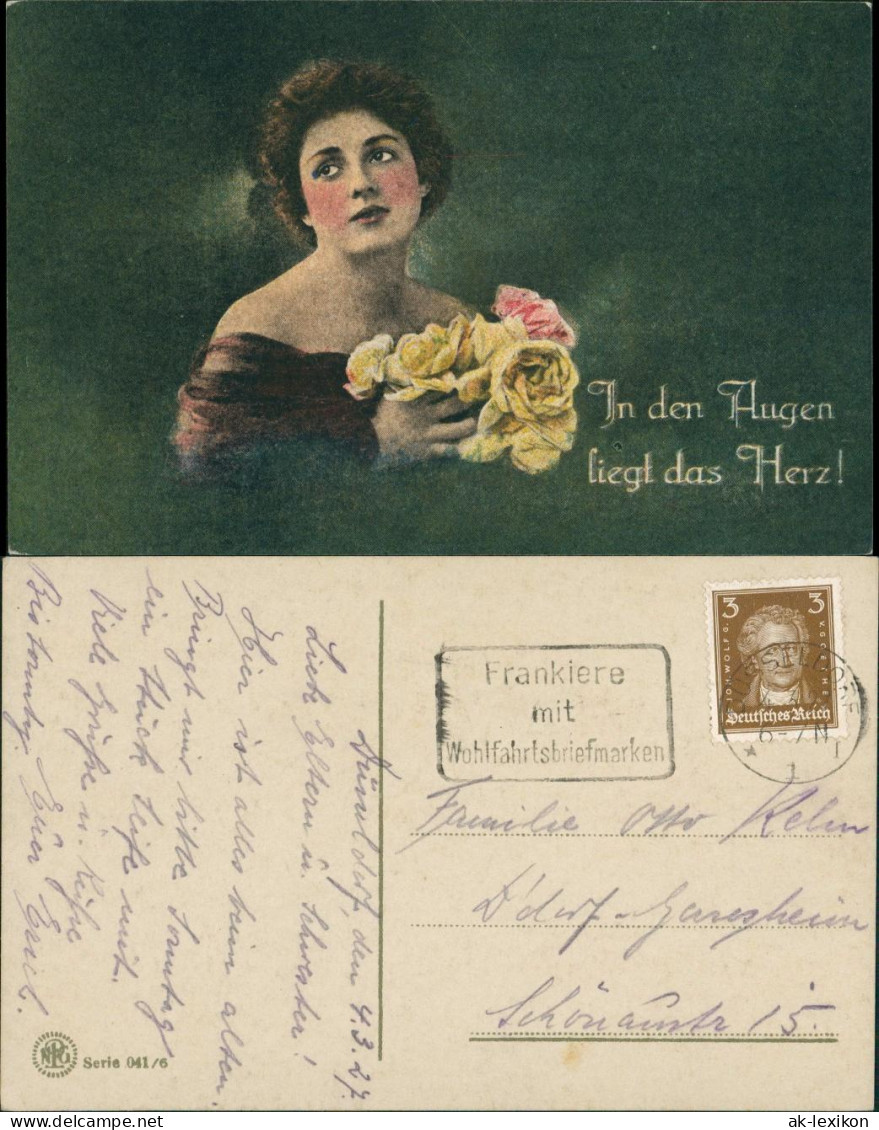 In den Augen
liegt das Herz!
Düsseldorf, den 4.3.27.
Liebe Eltern u. Schwester!
Hier ist alles beim alten.
Bringt mir bitte Sonntag
ein Stück Seife mit.
Viele Grüße u. Küße
Bis Sonntag Euer Emil.
Frankiere
mit
Wohlfahrtsbriefmarken
3 3
JOH. WOLFG. V. GOETHE
Deutsches Reich
DÜSSELDORF
6-7 N
1
Familie Otto
D'dorf-Gerresheim
Schönaustr 15.
NPG
Serie 041/6
ak-lexikon